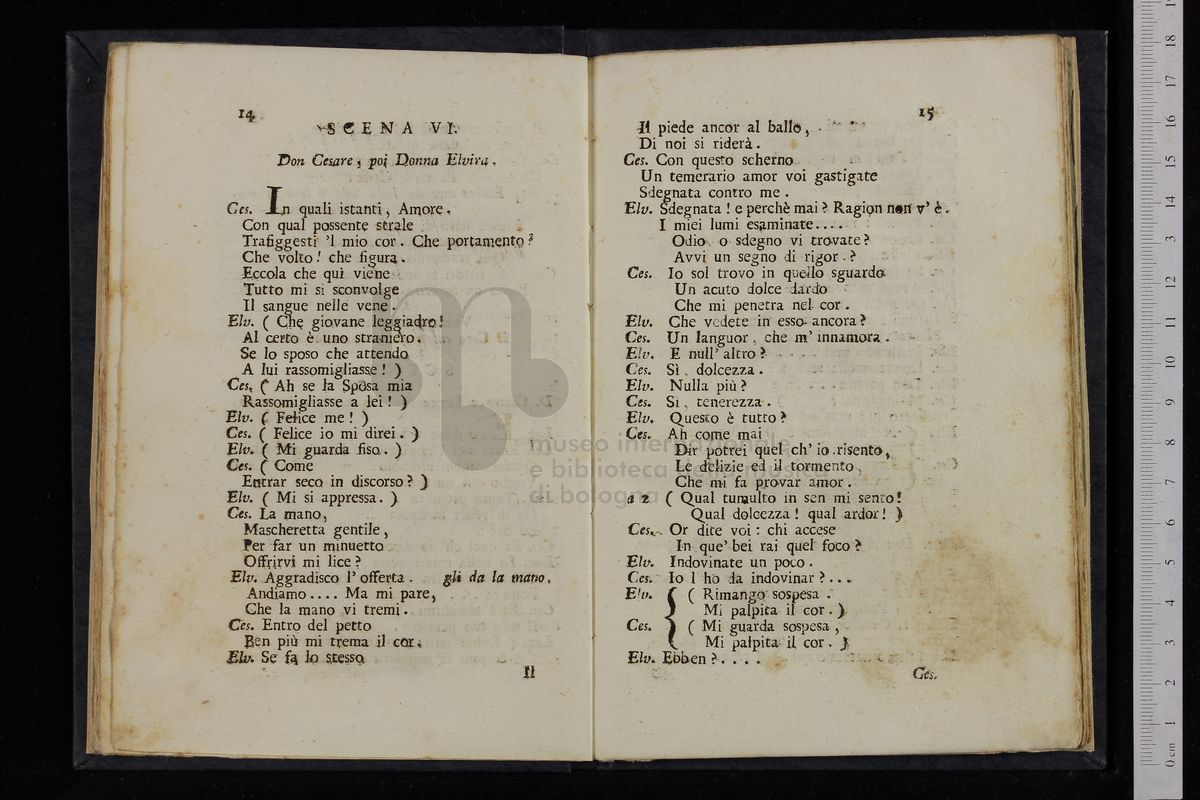 14
SCENA VI.
Don Cesare, poi Donna Elvira.
Ces. In quali istanti, Amore,
Con qual possente strale
Trafiggesti 'l mio cor. Che portamento?
Che volto! che figura.
Eccola che quì viene
Tutto mi si sconvolge
Il sangue nelle vene.
Elv. ( Che giovane leggiadro!
Al certo è uno straniero.
Se lo sposo che attendo
A lui rassomigliasse! )
Ces. ( Ah se la Sposa mia
Rassomigliasse a lei! )
Elv. ( Felice me! )
Ces. ( Felice io mi direi. )
Elv. ( Mi guarda fiso. )
Ces. ( Come
Entrar seco in discorso? )
Elv. ( Mi si appressa. )
Ces. La mano,
Mascheretta gentile,
Per far un minuetto
Offrirvi mi lice?
Elv. Aggradisco l'offerta. gli da la mano.
Andiamo.... Ma mi pare,
Che la mano vi tremi.
Ces. Entro del petto
Ben più mi trema il cor.
Elv. Se fa lo stesso
Il
15
Il piede ancor al ballo,
Di noi si riderà.
Ces. Con questo scherno
Un temerario amor voi gastigate
Sdegnata contro me.
Elv. Sdegnata! e perchè mai? Ragion non v'è.
I miei lumi esaminate....
Odio, o sdegno vi trovate?
Avvi un segno di rigor.?
Ces. Io sol trovo in quello sguardo
Un acuto dolce dardo
Che mi penetra nel cor.
Elv. Che vedete in esso ancora?
Ces. Un languor, che m'innamora.
Elv. E null'altro?
Ces. Sì, dolcezza.
Elv. Nulla più?
Ces. Sì, tenerezza.
Elv. Questo è tutto?
Ces. Ah come mai
Dir potrei quel ch'io risento,
Le delizie ed il tormento,
Che mi fa provar amor.
a 2 ( Qual tumulto in sen mi sento!
Qual dolcezza! qual ardor! )
Ces. Or dite voi: chi accese
In que' bei rai quel foco?
Elv. Indovinate un poco.
Ces. Io l'ho da indovinar?...
Elv. ( Rimango sospesa.
Mi palpita il cor. )
Ces. ( Mi guarda sospesa,
Mi palpita il cor. )
Elv. Ebben?....
Ces.
museo internazionale
e biblioteca della musica
di bologna
0 cm 1 2 3 4 5 6 7 8 9 10 11 12 13 14 15 16 17 18